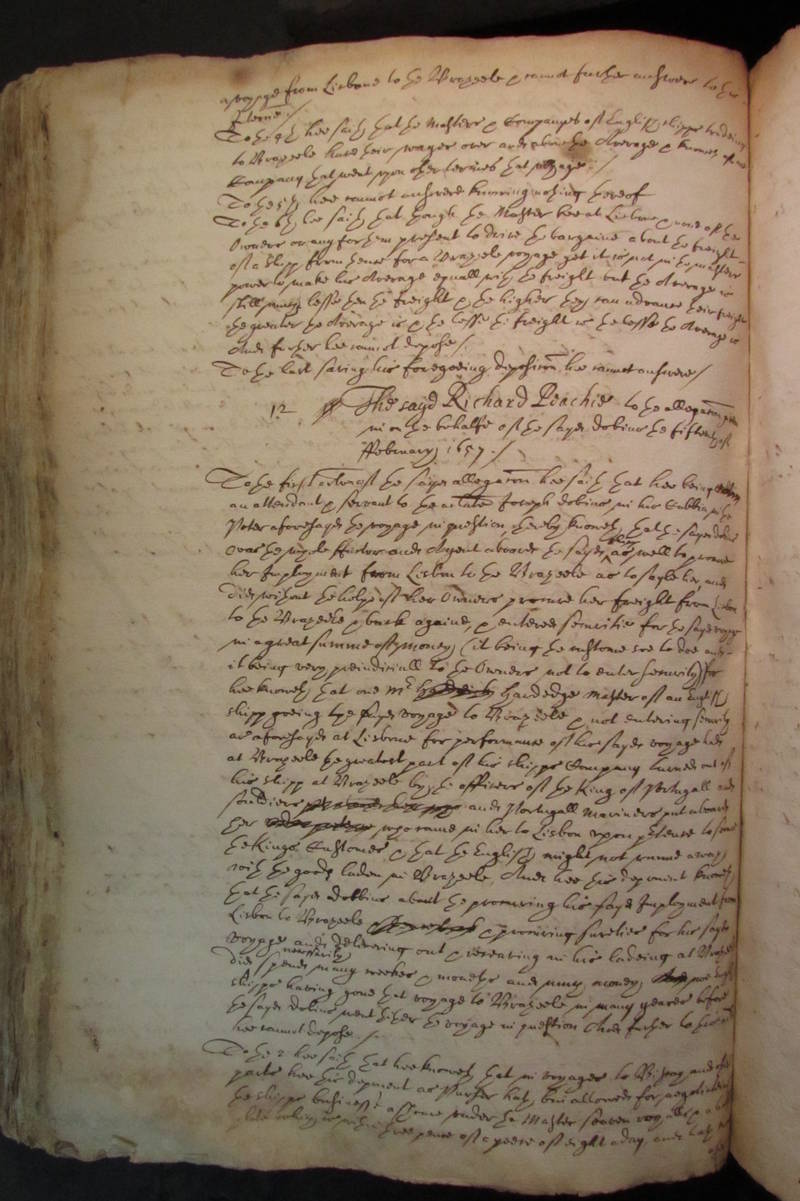 a voyage from Lisbone to the Brazeele & cannot further answere to this
Interrie:/
To the 4th hee saith that the Masters & Companyes of English shipps trading
to Brazeele have their wages over and above the Average & knoweth of noe
Company that went upon other termes that voyage:/
To the 5th hee cannot answere knowing nothing thereof
To the 6th hee saith that though the Master bee at Lisbone & none of the
Owners or any for them present to drive the bargaine about the freight
of a shipp from thence for a Brazeele voyage yet it is not in the masters
power to make his Average equall with the freight but the Average is
still much lesse then the freight & the higher they can advance their freight
the greater the Average is & the lesse the freight is the lesse the Average is
And further hee cannot depose/
To the last saving his foregoeing deposition hee cannot answere/
12 The sayd Richard Peachie to the allegation
in on the behalfe of the sayd Dobins the fifteenth of
ffebruary 1657:/
To the first of the sayd allegation hee saith that hee being
an attendant & servant to the Joseph Dobins in his Cabbin in the
Peter aforesayd the voyage in question, thereby knoweth that the sayd Dobins
was the whole ffactor and Agent aboard the sayd shipp as well to procure
her Imployment from Lisbon to the Brazeele as to sayle her, and
did without the helpe of her Owners procure her freight from Lisbon
to the Brazeele & back againe, & entered securitie for the sayd voyage
in a great summe of money (it being the custome soe to doe and
it being very prejudiciall to the Owners not to enter security) for
hee knoweth that one Mr handedge Master of an English
shipp goeing the sayd voyage to Brazeele & not entering security
as aforesayd at Lisbone for performance of his sayd voyage had
at Brazeele the greatest part of his shipps Company turned out of
his shipp at Brazeele by the officers of the King of Portugall and
souldiers and Portugall Mariners put aboard
her who came in her to Lisbon upon pretence to save
the Kings Customes & that the English might not runne away
with the goods laden in Brazeele, And hee this deponent knoweth
that the sayd Dobbins about the procureing his sayd Imployment from
Lisbon to Brazeele & procuring sureties for his sayd
voyage and delivering out & receaving in his ladeing at Brazeele
did necessarily spend many weekes & moneths and much money, noe English
shipps having gone that voyage to Brazeele in many yeares before
the sayd Dobins went thither the voyage in question And further to this
hee cannot depose./
To the 2 hee saith that hee knoweth that in voyages to and other
parts hee this deponent as Purser hath bin allowed for negotiating
the shipps businesse ashoare under the Master
pence of a peece of eight a day, and